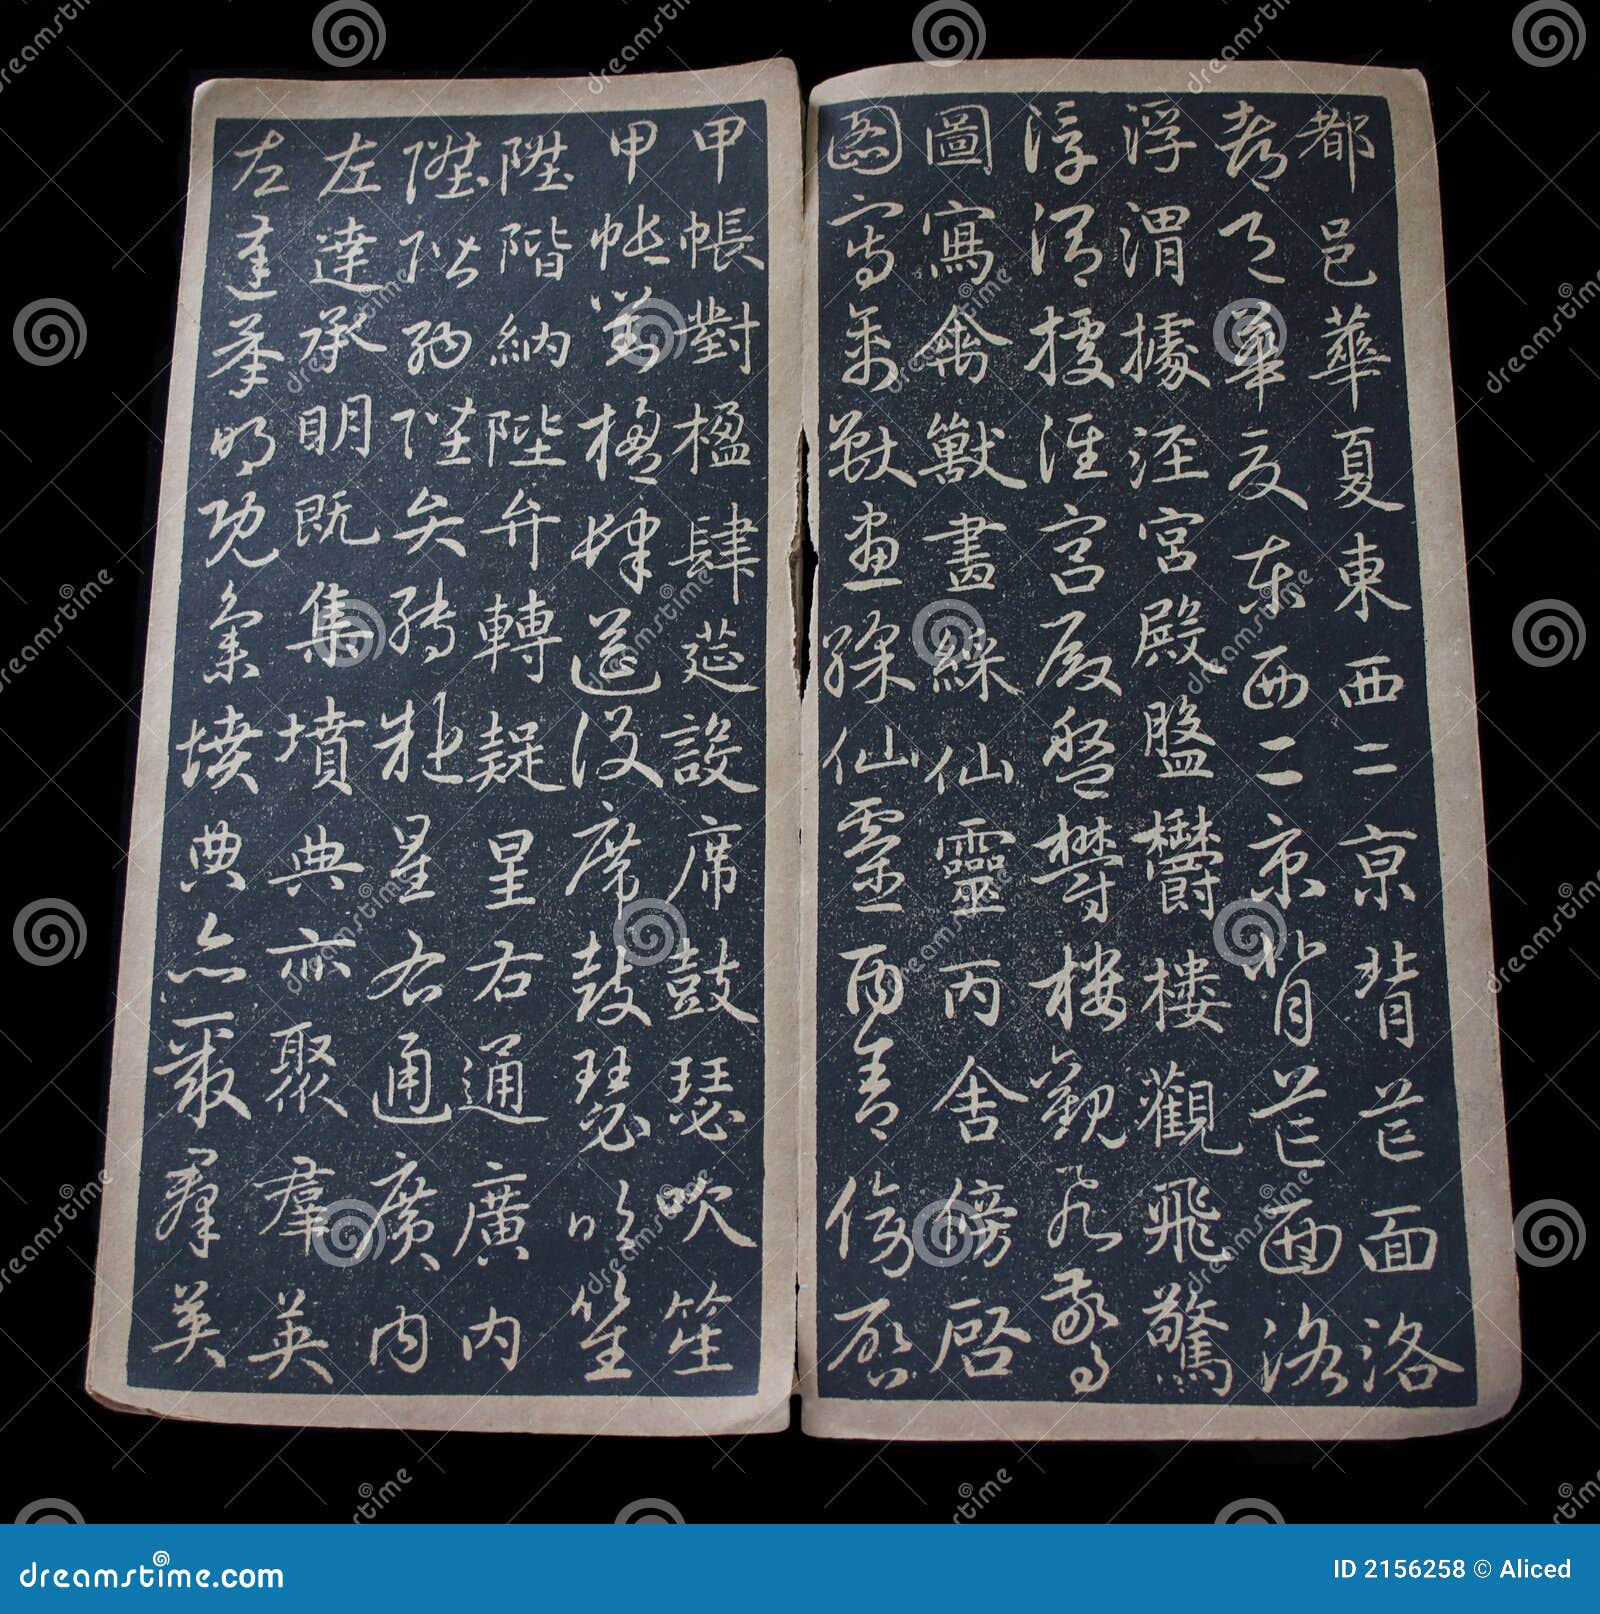 都邑華夏東西二京背芒面洛
都邑華夏東西二京背芒面洛
浮渭據涇宮殿盤鬱樓觀飛驚
浮渭據涇宮殿盤鬱樓觀飛驚
圖寫禽獸畫綵仙靈丙舍傍啓
圖寫禽獸畫綵仙靈丙舍傍啓
甲帳對楹肆筵設席鼓瑟吹笙
甲帳對楹肆筵設席鼓瑟吹笙
陞階納陛弁轉疑星右通廣內
陞階納陛弁轉疑星右通廣內
左達承明既集墳典亦聚羣英
左達承明既集墳典亦聚羣英
dreamstime.com
ID 2156258 © Aliced